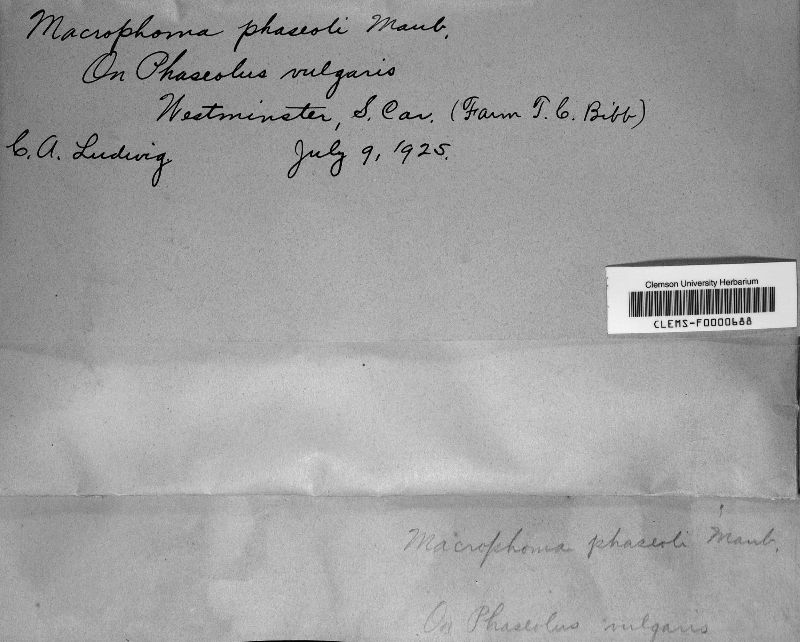 Macrophoma phaseoli Maub.
On Phaseolus vulgaris
Westminster, S. Car. (Farm T. C. Bibb)
C. A. Ludwig July 9, 1925.
Clemson University Herbarium
CLEMS-F0000688
Macrophoma phaseoli Maub.
On Phaseolus vulgaris